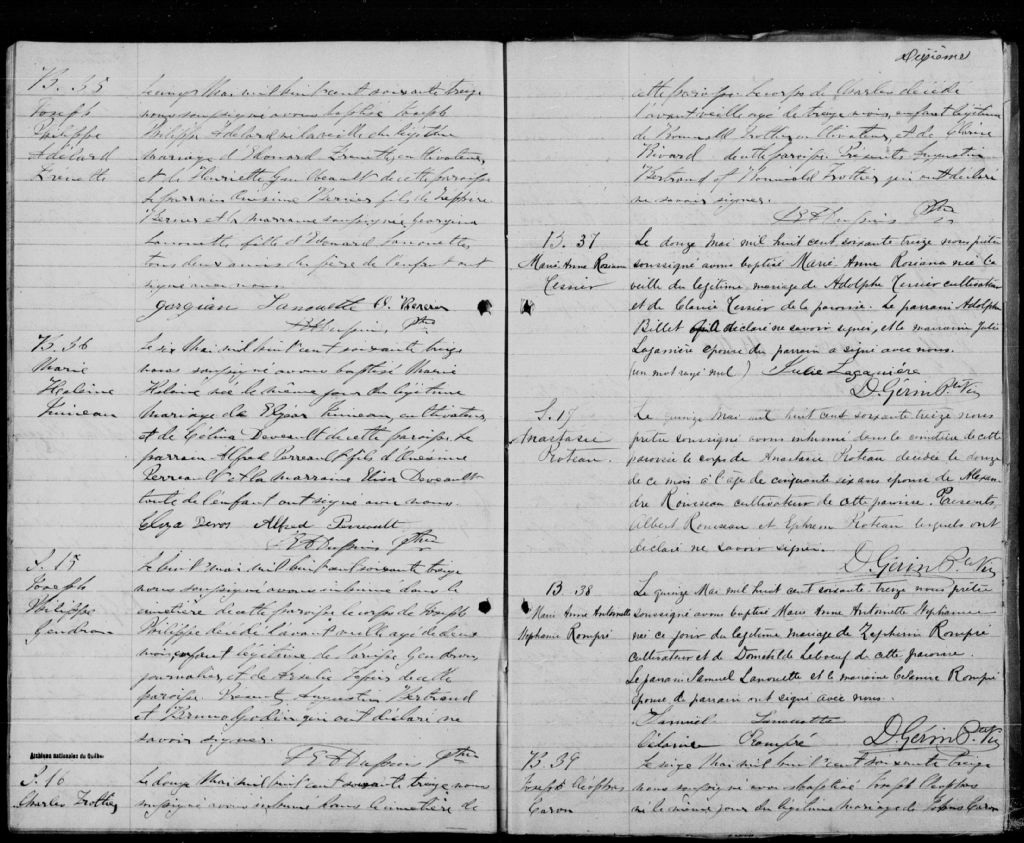 B. 35
Joseph
Philippe
Adélard
Frenette
Mai mil huit cent soixante treize
nous soussigné avons baptisé Joseph
Philippe Adélard né la veille du légitime
mariage d'Edouard Frenette, cultivateur,
et de Henriette de cette paroisse
Le parrain Onésime Bernier fils de Zéphire
Bernier et la marraine soussignée Georgina
Lanouette fille d'Edouard Lanouette,
tous deux amis du père de l'enfant ont
signé avec nous
gorgian Lanouette O. Bercier
Ptre
B. 36
Marie
Heleine
Juneau
Le six Mai mil huit cent soixante treize
nous soussigné avons baptisé Marie
Heleine née le même jour du légitime
mariage de Elzear Juneau, cultivateur,
et de Célina Deveault de cette paroisse. Le
parrain Alfred Perreault fils d'Onesime
Perreault et la marraine Elisa Deveault
tante de l'enfant ont signé avec nous.
Eliza Devos Alfred Perreault
Ptre
S. 15
Joseph
Philippe
Gendron
Le huit Mai mil huit cent soixante treize
nous soussigné avons inhumé dans le
cimetière de cette paroisse le corps de Joseph
Philippe décédé l'avant veille agé de deux
mois, enfant légitime de Gendron,
journalier, et de de cette
paroisse. Présents Augustin Bertrand
et Bruno Godin qui ont déclaré ne
savoir signer.
Ptre
Archives nationales du Québec
S. 16
Charles Trottier
Le douze Mai mil huit cent soixante treize nous
soussigné avons inhumé dans le cimetière de
Dixième
cette paroisse le corps de Charles décédé
l'avant veille agé de treize mois, enfant légitime
de Trottier, cultivateur, et de Clarisse
Rivard de cette paroisse. Présents Augustin
Bertrand et Trottier qui ont déclaré
ne savoir signer.
Ptre
B. 37
Marie Anne Rosiana
Tessier
Le douze Mai mil huit cent soixante treize nous prêtre
soussigné avons baptisé Marie Anne Rosiana née la
veille du legitime mariage de Adolphe Tessier cultivateur
et de Clarie Tessier de la paroisse. Le parrain Adolphe
Billet a declaré ne savoir signer, et la marraine Julie
Laganière epouse du parrain a signé avec nous.
(un mot rayé nul) Julie Laganière
D. Gérin Ptre Vic
S. 17
Anastasie
Proteau.
Le quinze Mai mil huit cent soixante treize nous
prêtre soussigné avons inhumé dans le cimetière de cette
paroisse le corps de Anastasie Proteau décédée le douze
de ce mois à l'âge de cinquante six ans epouse de Alexan
dre Rousseau cultivateur de cette paroisse. Présents
Albert Rousseau et Ephrem Proteau lesquels ont
declaré ne savoir signer.
D. Gérin Ptre Vic
B. 38
Marie Anne Antoinette
Stephanie Rompré
Le quinze Mai mil huit cent soixante treize nous prêtre
soussigné avons baptisé Marie Anne Antoinette Stephanie
née ce jour du legitime mariage de Zepherin Rompré
cultivateur et de Domethilde Leboeuf de cette paroisse.
Le parrain Samuel Lanouette et la marraine Celanire Rompré
epouse du parrain ont signé avec nous.
Samuel Lanouette
Célanire Rompré D. Gérin Ptre Vic
B. 39
Joseph Cléophas
Caron
Le seize Mai mil huit cent soixante treize
nous soussigné avons baptisé Joseph Cléophas
né le même jour du légitime mariage de Caron